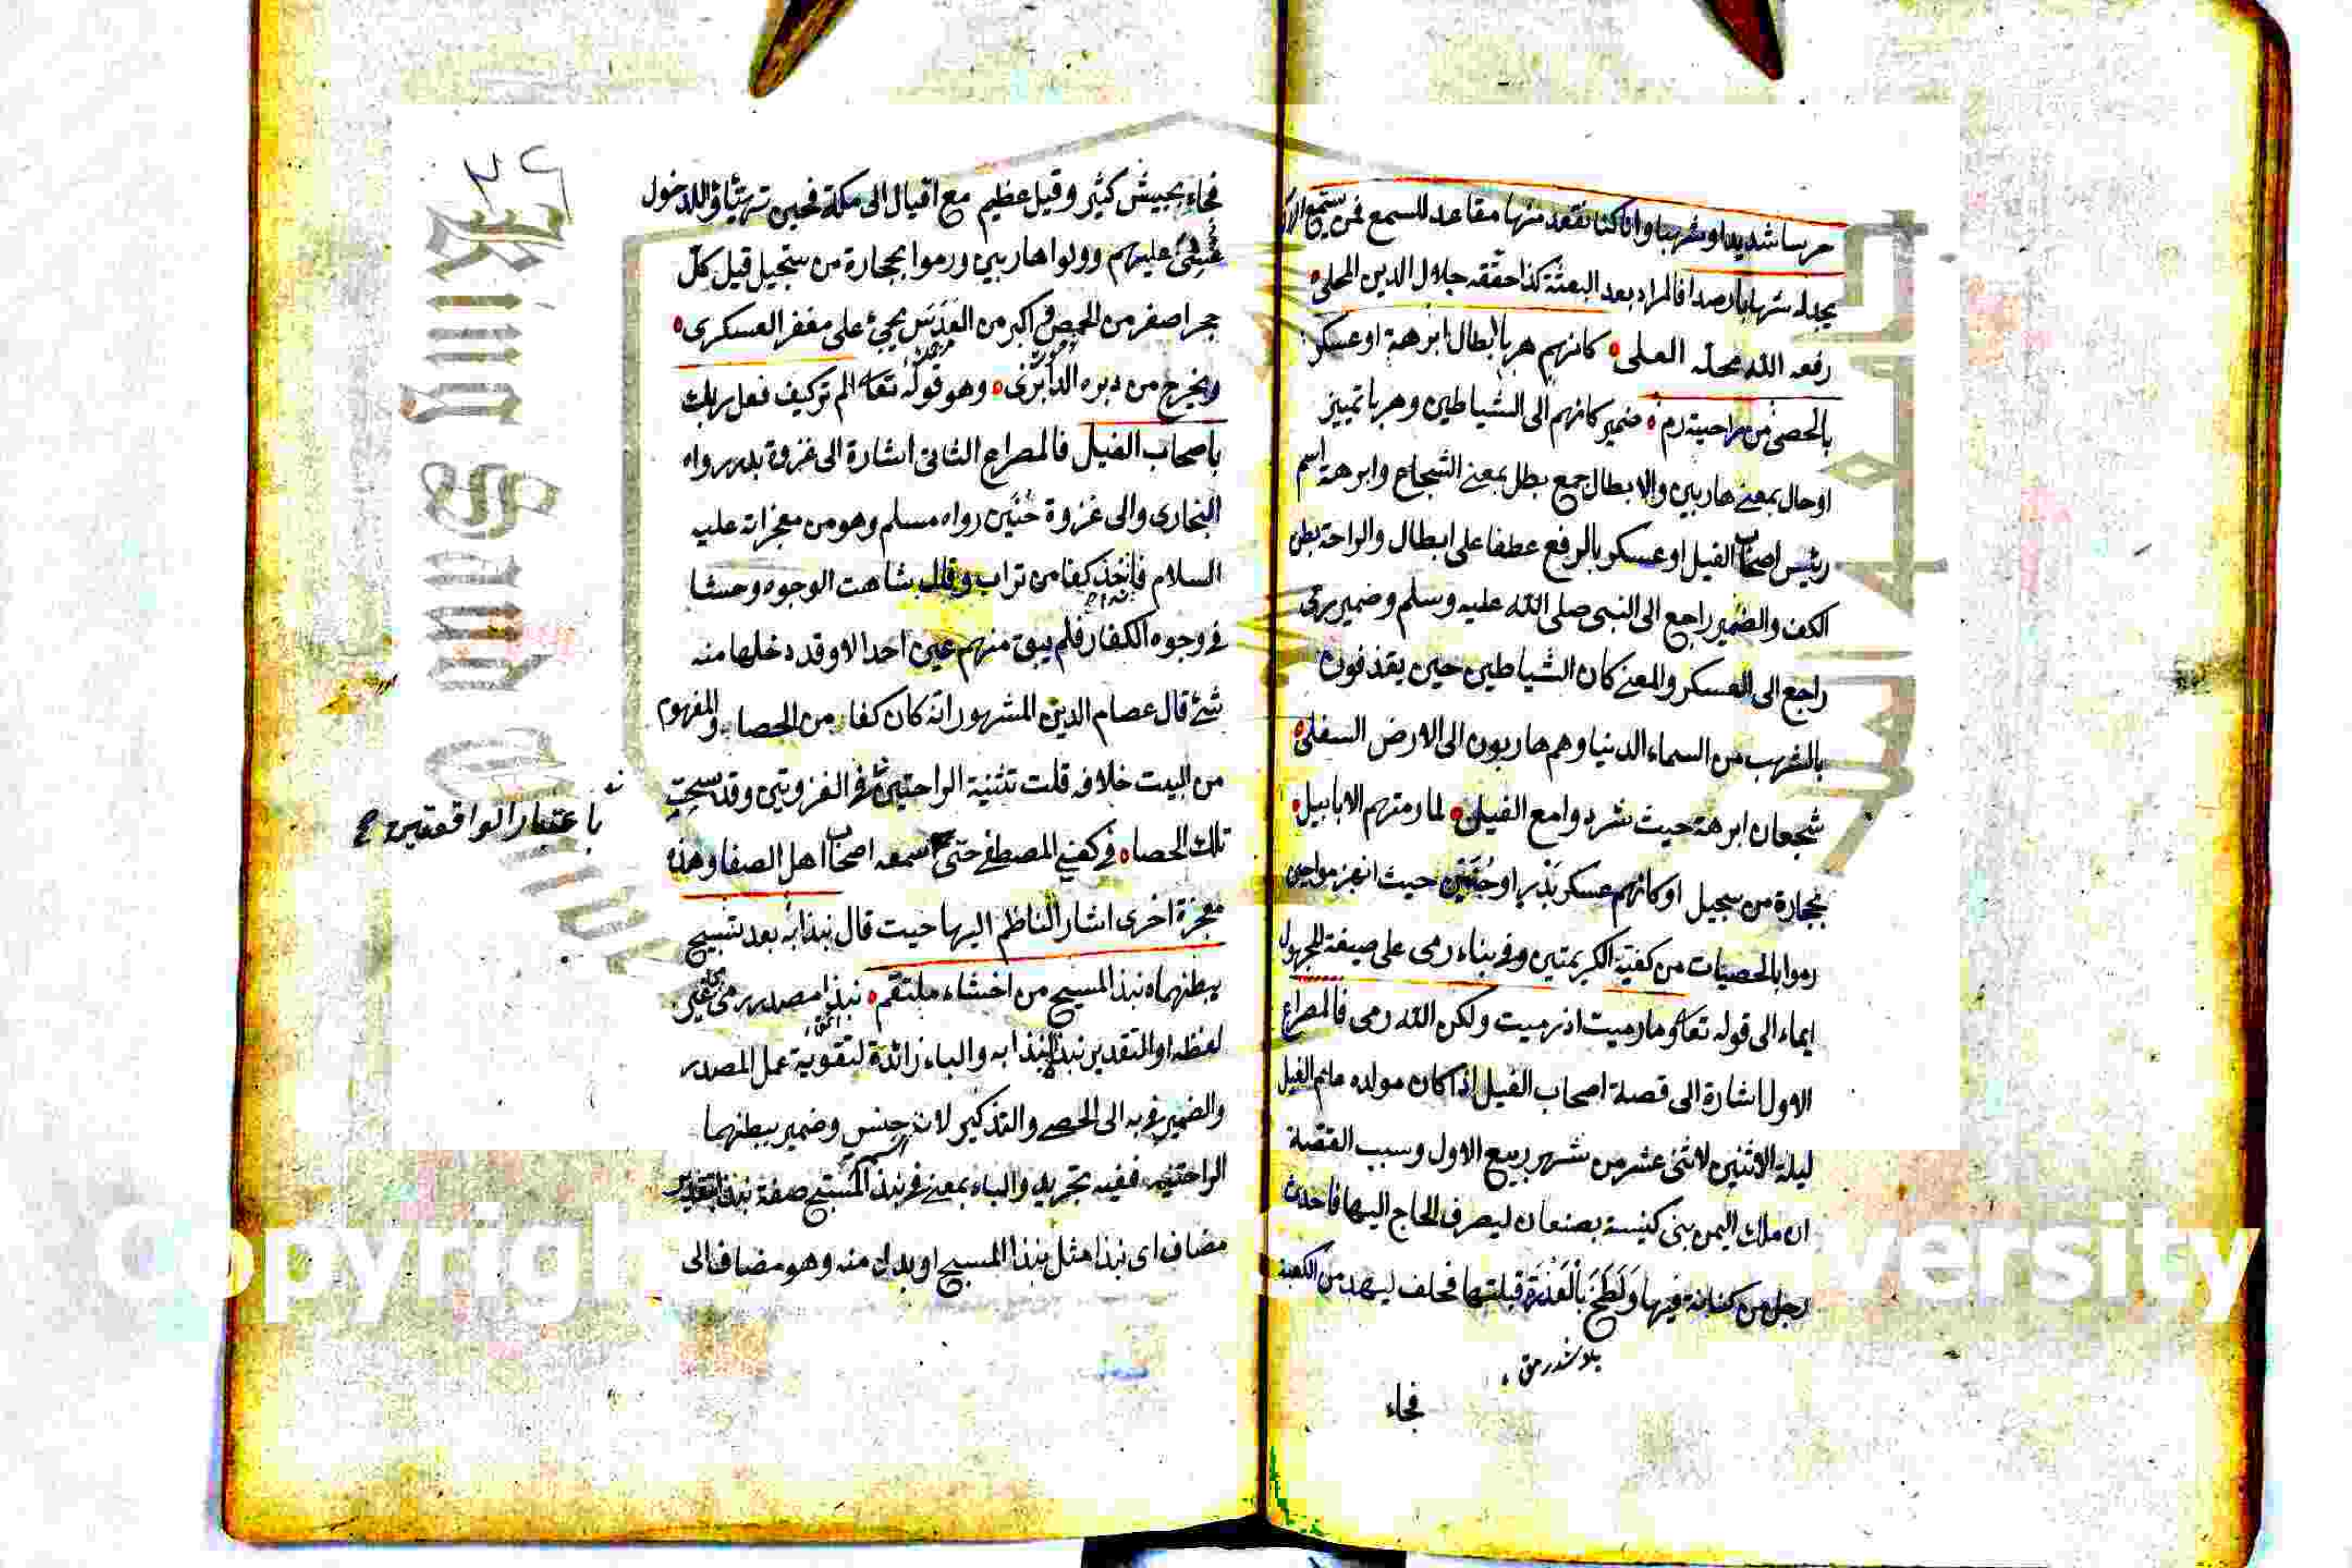 حرسا شديدا وشهبا وانا كنا نقعد منها مقاعد للسمع فمن يستمع الان
يجد له شهابا رصدا فالمراد بعد البعثة كذا حققه جلال الدين المحلى
رفعه الله محله العلى كانهم هربا ابطال ابرهة او عسكر
بالحصى من راحتيه رم ضمير كانهم الى الشياطين وهربا تمييز
او حال بمعنى هاربين والابطال جمع بطل بمعنى الشجاع وابرهة اسم
رئيس اصحاب الفيل او عسكر بالرفع عطفا على ابطال والراحة بطن
الكف والضمير راجع الى النبى صلى الله عليه وسلم وضمير رمى
راجع الى العسكر والمعنى كان الشياطين حين يقذفون
بالشهب من السماء الدنيا وهم هاربون الى الارض السفلى
شجعان ابرهة حيث شردوا مع الفيل لما رمتهم الابابيل
بحجارة من سجيل او كانهم عسكر بدر او حنين حيث انهزموا حين
رموا بالحصيات من كفيه الكريمتين وفى بناء رمى على صيغة المجهول
ايماء الى قوله تعا وما رميت اذ رميت ولكن الله رمى فالمصراع
الاول اشارة الى قصة اصحاب الفيل اذا كان مولده عام الفيل
ليلة الاثنين لاثنى عشر من شهر ربيع الاول وسبب القصة
ان ملك اليمن بنى كنيسة بصنعان ليصرف الحاج اليها فاحدث
رجل من كنانة فيها ولطخ بالعذرة قبلتها فحلف ليهدمن الكعبة
فجاء
فجاء بجيش كثير وفيل عظيم مع افيال الى مكة فحين تهيئاوا للدخول
عليهم وولوا هاربين ورموا بحجارة من سجيل قيل كل
حجر اصغر من الحمص واكبر من العدس يجئ على مغفر العسكرى
ويخرج من دبره وهو قوله تعا الم تر كيف فعل ربك
باصحاب الفيل فالمصراع الثانى اشارة الى غزوة بدر رواه
البخارى والى غزوة حنين رواه مسلم وهو من معجزاته عليه
السلام فاخذ كفا من تراب وقال شاهت الوجوه وحشا
فى وجوه الكفار فلم يبق منهم عين احد الا وقد دخلها منه
شئ قال عصام الدين المشهور انه كان كفا من الحصا والمفهوم
من البيت خلافه قلت تثنية الراحتين فى الغزوتين وقد سبحت
باعتبار الواقعتين
تلك الحصاه فى كفى المصطفى حتى سمعه اصحاب اهل الصفا وهذه
معجزة اخرى اشار الناظم اليها حيث قال نبذا به بعد تسبيح
ببطنهما نبذ المسبح من احشاء ملتقم نبذا مصدر رمى
لفظه او التقدير نبذ نبذا به والباء زائدة لتقوية عمل المصدر
والضمير فى به الى الحصى والتذكير لانه جنس وضمير ببطنهما
الراحتين ففيه تجريد والباء بمعنى فى نبذ المسبح صفة نبذا بتقدير
مضاف اى نبذا مثل نبذ المسبح او بدل منه وهو مضاف الى